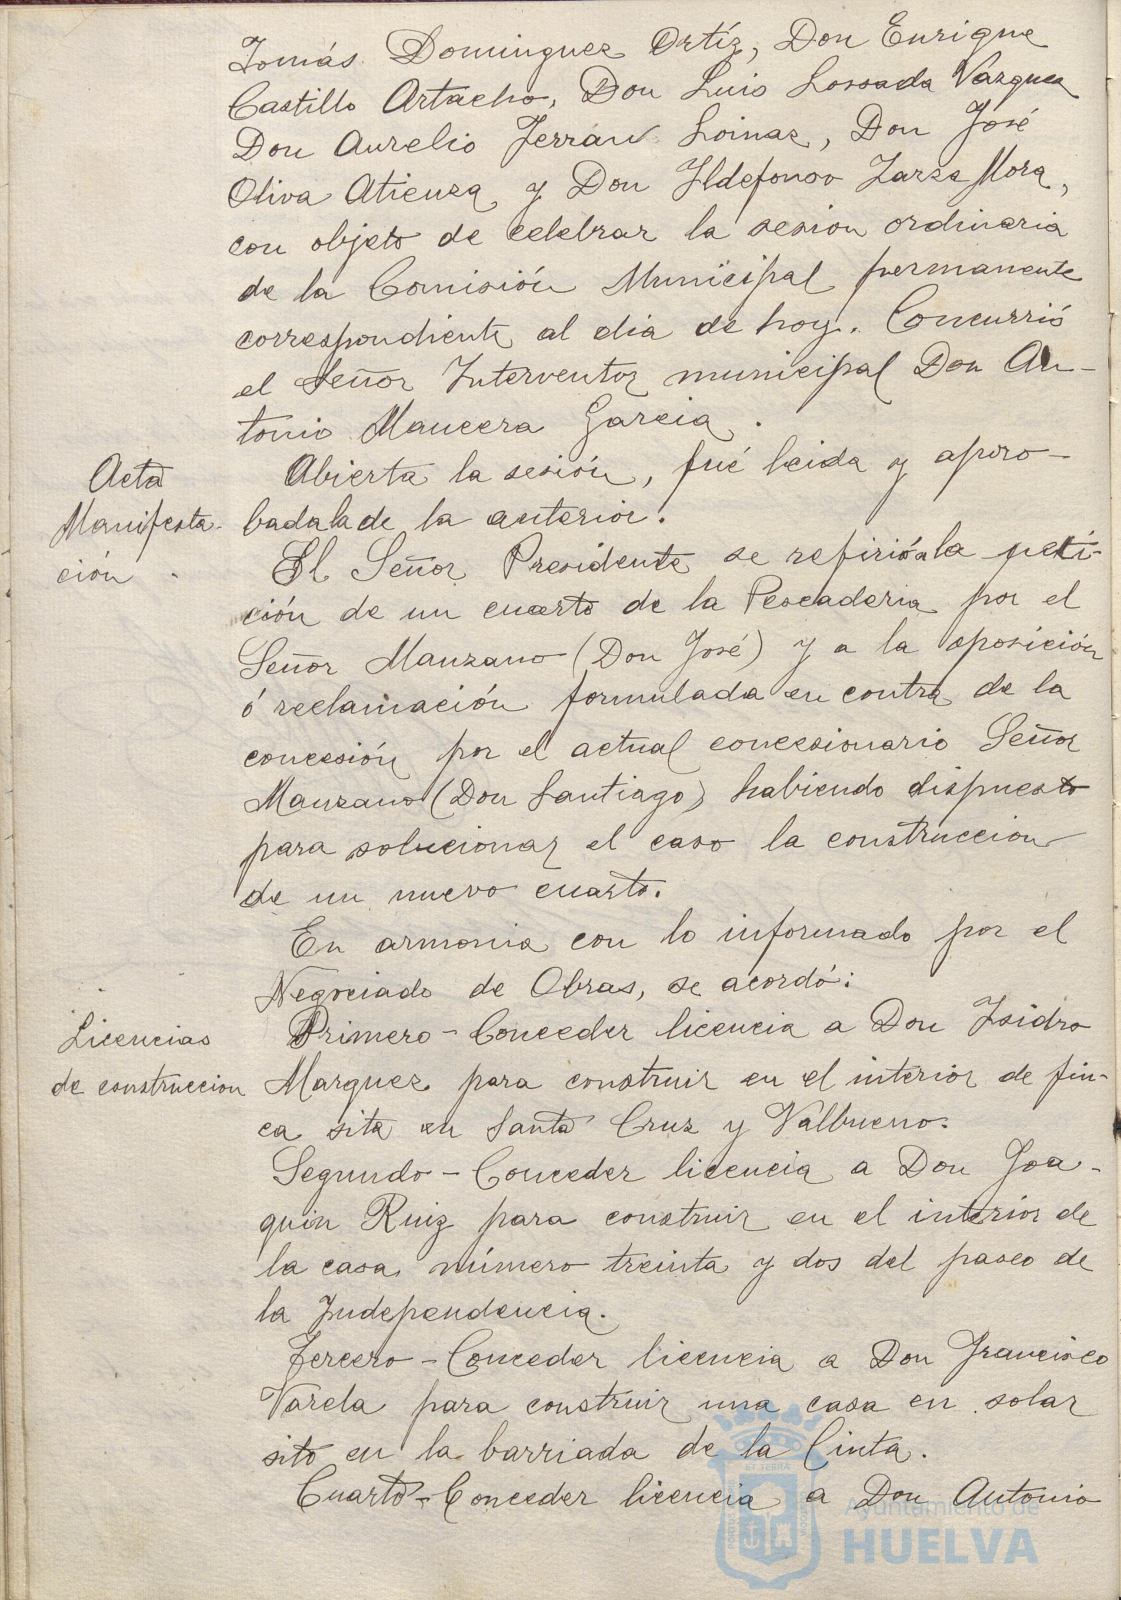 Tomás Dominguez Ortíz, Don Enrique
Castillo Artacho, Don Luis Lossada Vazquez
Don Aurelio Ferrán Loinaz, Don José
Oliva Atienza y Don Ildefonso Zarza Mora,
con objeto de celebrar la sesion ordinaria
de la Comisión Municipal permanente
correspondiente al dia de hoy. Concurrió
el Señor Interventor municipal Don An-
tonio Mancera Garcia.
Acta
Abierta la sesión, fué leida y apro-
badala de la anterior.
Manifesta-
ción.
El Señor Presidente se refirió a la peti-
ción de un cuarto de la Pescaderia por el
Señor Manzano (Don José) y a la oposición
ó reclamación formulada en contra de la
concesión por el actual concesionario Señor
Manzano (Don Santiago) habiendo dispuesto
para solucionar el caso la construccion
de un nuevo cuarto.
En armonia con lo informado por el
Negociado de Obras, se acordó:
Licencias
de construccion
Primero - Conceder licencia a Don Isidro
Marquez para construir en el interior de fin-
ca sita en Santa Cruz y Valbueno.
Segundo - Conceder licencia a Don Joa-
quin Ruiz para construir en el interior de
la casa número treinta y dos del paseo de
la Independencia.
Tercero - Conceder licencia a Don Francisco
Varela para construir una casa en solar
sito en la barriada de la Cinta.
Cuarto - Conceder licencia a Don Antonio
Ayuntamiento de
HUELVA